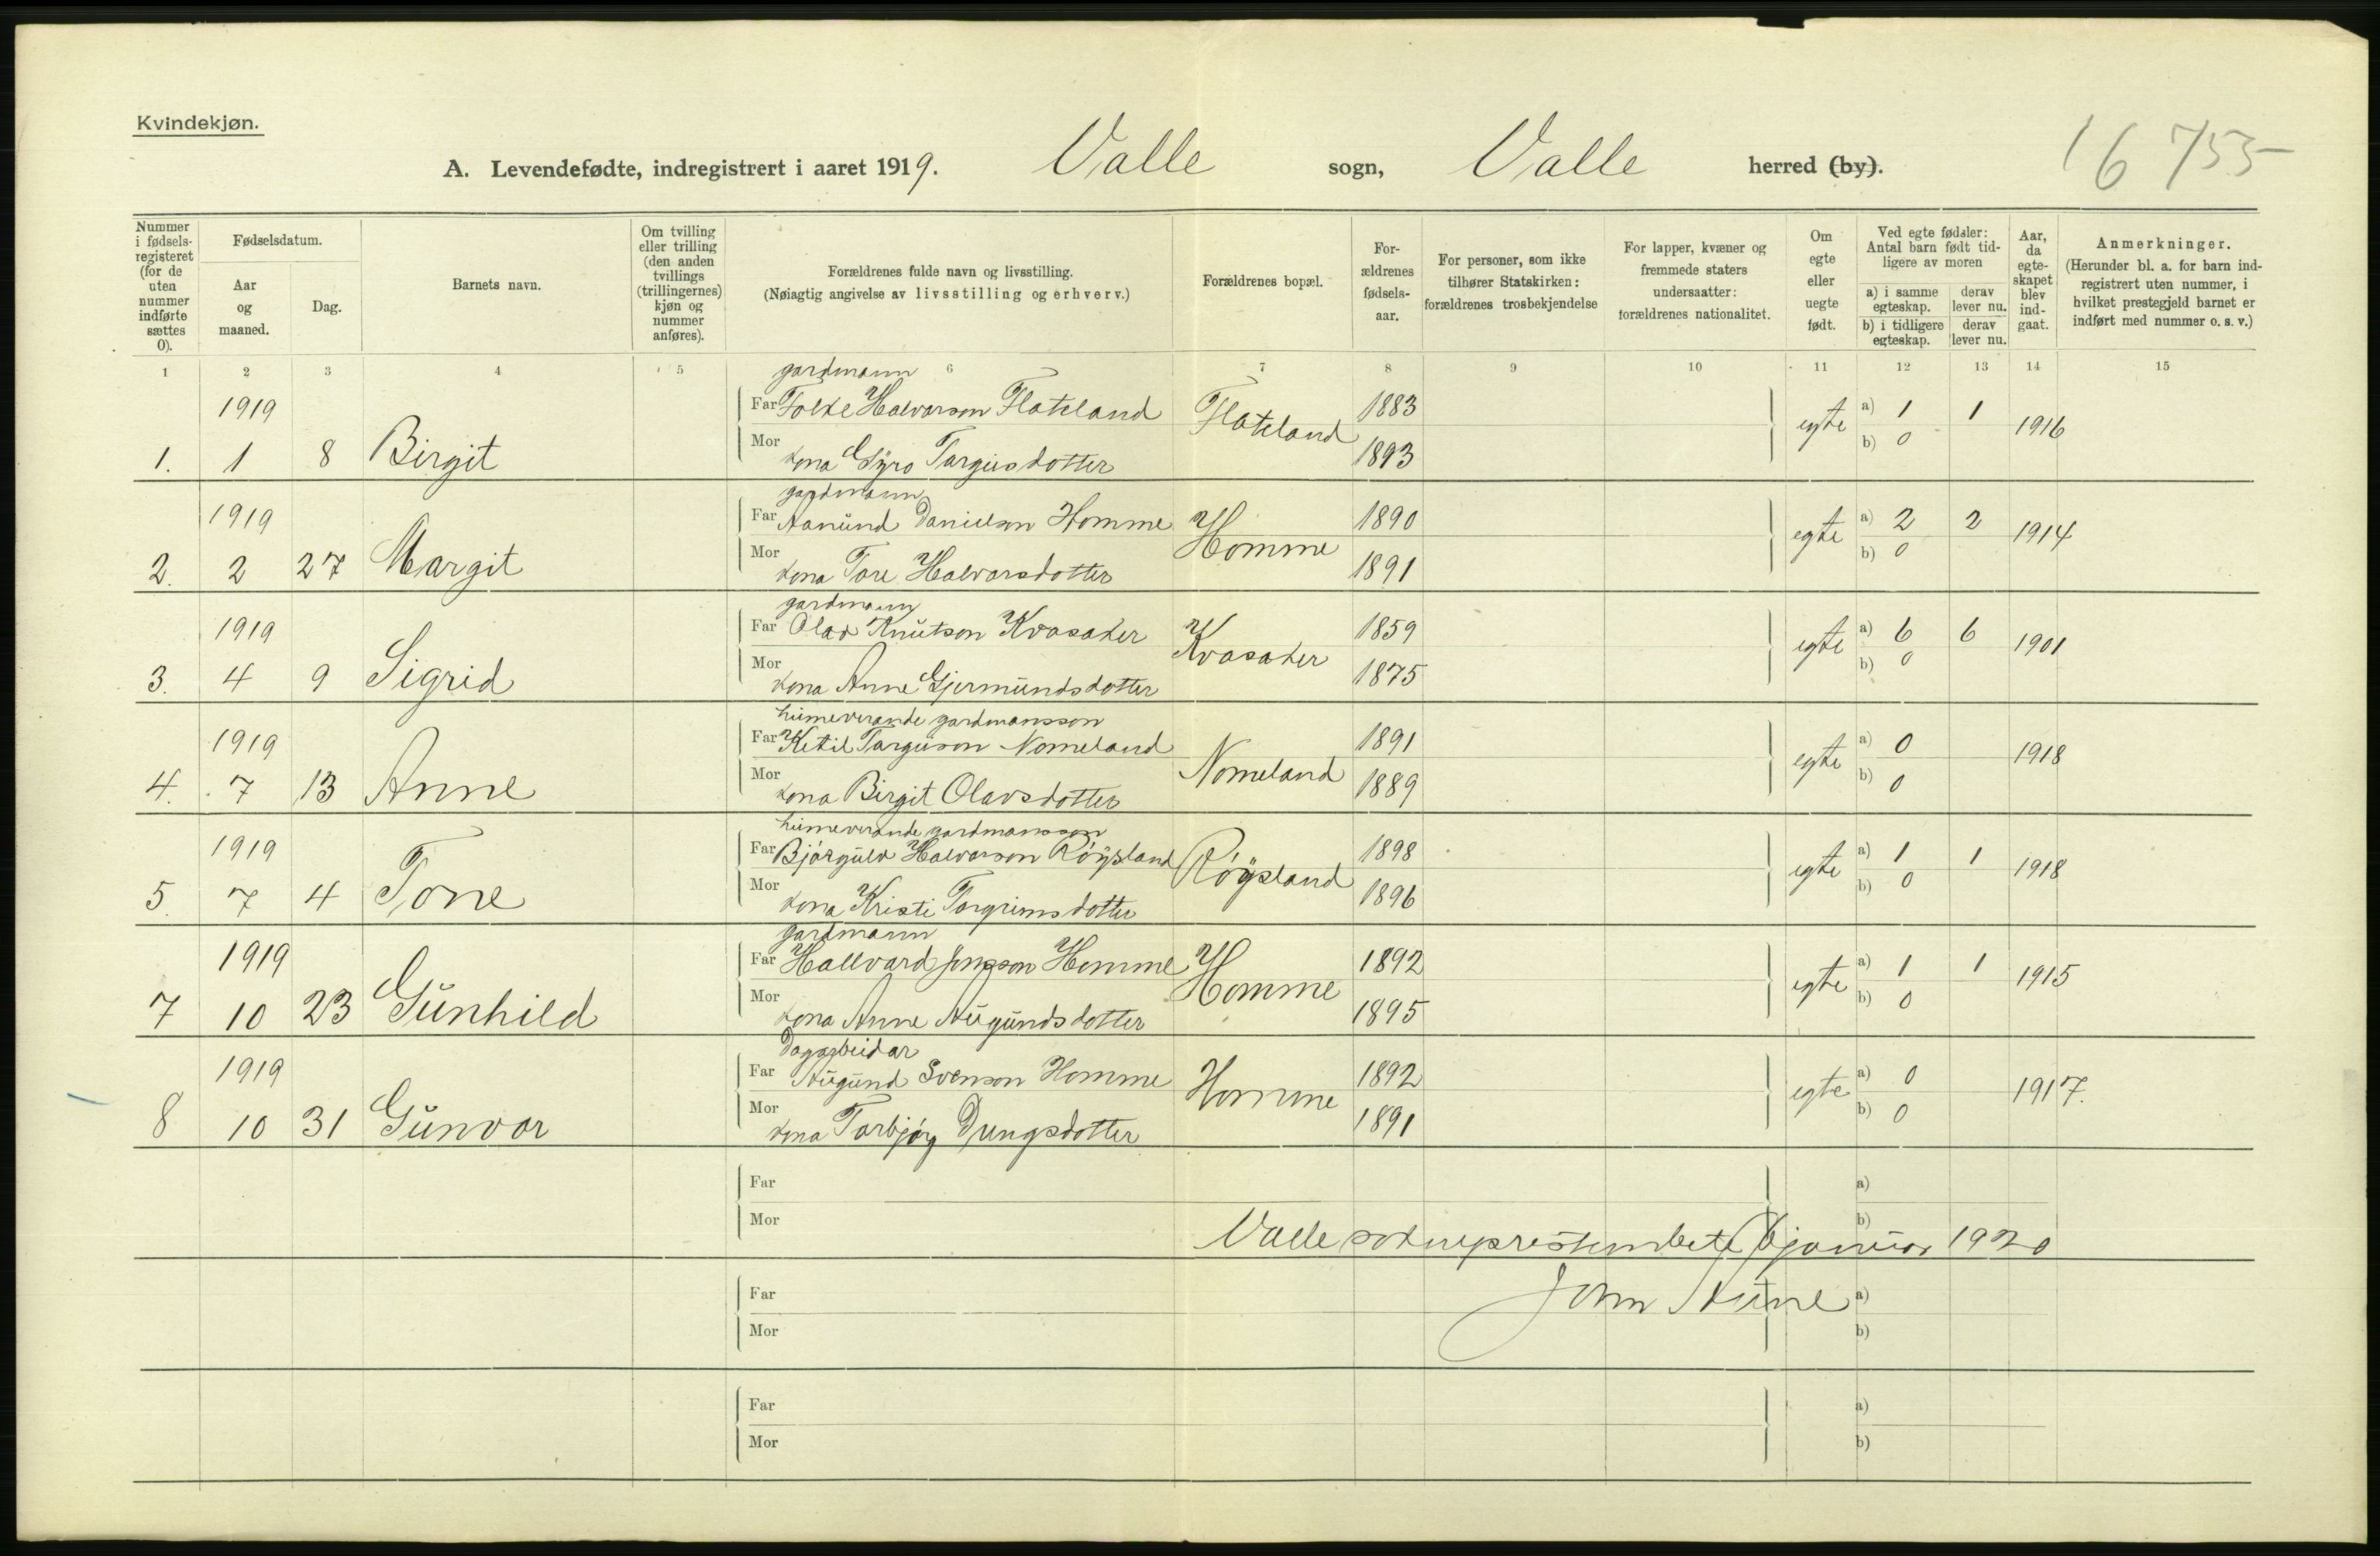 Kvindekjøn.
A. Levendefødte, indregistrert i aaret 1919. Valle sogn, Valle herred (by). 16 755
Nummer i fødsels-registeret (for de uten nummer indførte sættes 0).
Fødselsdatum.
Aar og maaned.
Dag.
Barnets navn.
Om tvilling eller trilling (den anden tvillings (trillingernes) kjøn og nummer anføres).
Forældrenes fulde navn og livsstilling.
(Nøiagtig angivelse av livsstilling og erhverv.)
Forældrenes bopæl.
For-ældrenes fødsels-aar.
For personer, som ikke tilhører Statskirken: forældrenes trosbekjendelse
For lapper, kvæner og fremmede staters undersaatter: forældrenes nationalitet.
Om egte eller uegte født.
Ved egte fødsler: Antal barn født tid-ligere av moren
a) i samme egteskap. derav lever nu.
b) i tidligere egteskap. derav lever nu.
Aar, da egte-skapet blev ind-gaat.
Anmerkninger.
(Herunder bl. a. for barn ind-registrert uten nummer, i hvilket prestegjeld barnet er indført med nummer o. s. v.)
1 2 3 4 5 6 7 8 9 10 11 12 13 14 15
gardmann
1919 Far Folke Halvorson Flateland Flateland 1883 egte a) 1 1 1916
1. 1 8 Birgit Mor kona Gyro Targusdotter 1893 b) 0
gardmann
1919 Far Aanund Danielson Homme Homme 1890 egte a) 2 2 1914
2. 2 27 Margit Mor kona Tore Halvorsdotter 1891 b) 0
gardmann
1919 Far Olav Knutson Kvasaker Kvasaker 1859 egte a) 6 6 1901
3. 4 9 Sigrid Mor kona Anne Gjermundsdotter 1875 b) 0
heimeverande gardmansson
1919 Far Ketil Targuson Nomeland Nomeland 1891 egte a) 0 1918
4. 7 13 Anne Mor kona Birgit Olavsdotter 1889 b) 0
heimeverande gardmansson
1919 Far Bjørgulv Halvorson Røysland Røysland 1898 egte a) 1 1 1918
5. 7 4 Tone Mor kona Kristi Torgrimsdotter 1896 b) 0
gardmann
1919 Far Hallvard Jonsson Homme Homme 1892 egte a) 1 1 1915
7 10 23 Gunhild Mor kona Anne Augundsdotter 1895 b) 0
Dagarbeidar
1919 Far Augund Svenson Homme Homme 1892 egte a) 0 1917.
8 10 31 Gunvor Mor kona Tarbjørg Dyngsdotter 1891 b) 0
Far a)
Mor b)
Valle sokneprestembete 6 januar 1920
Far John Skeine a)
Mor b)
Far a)
Mor b)